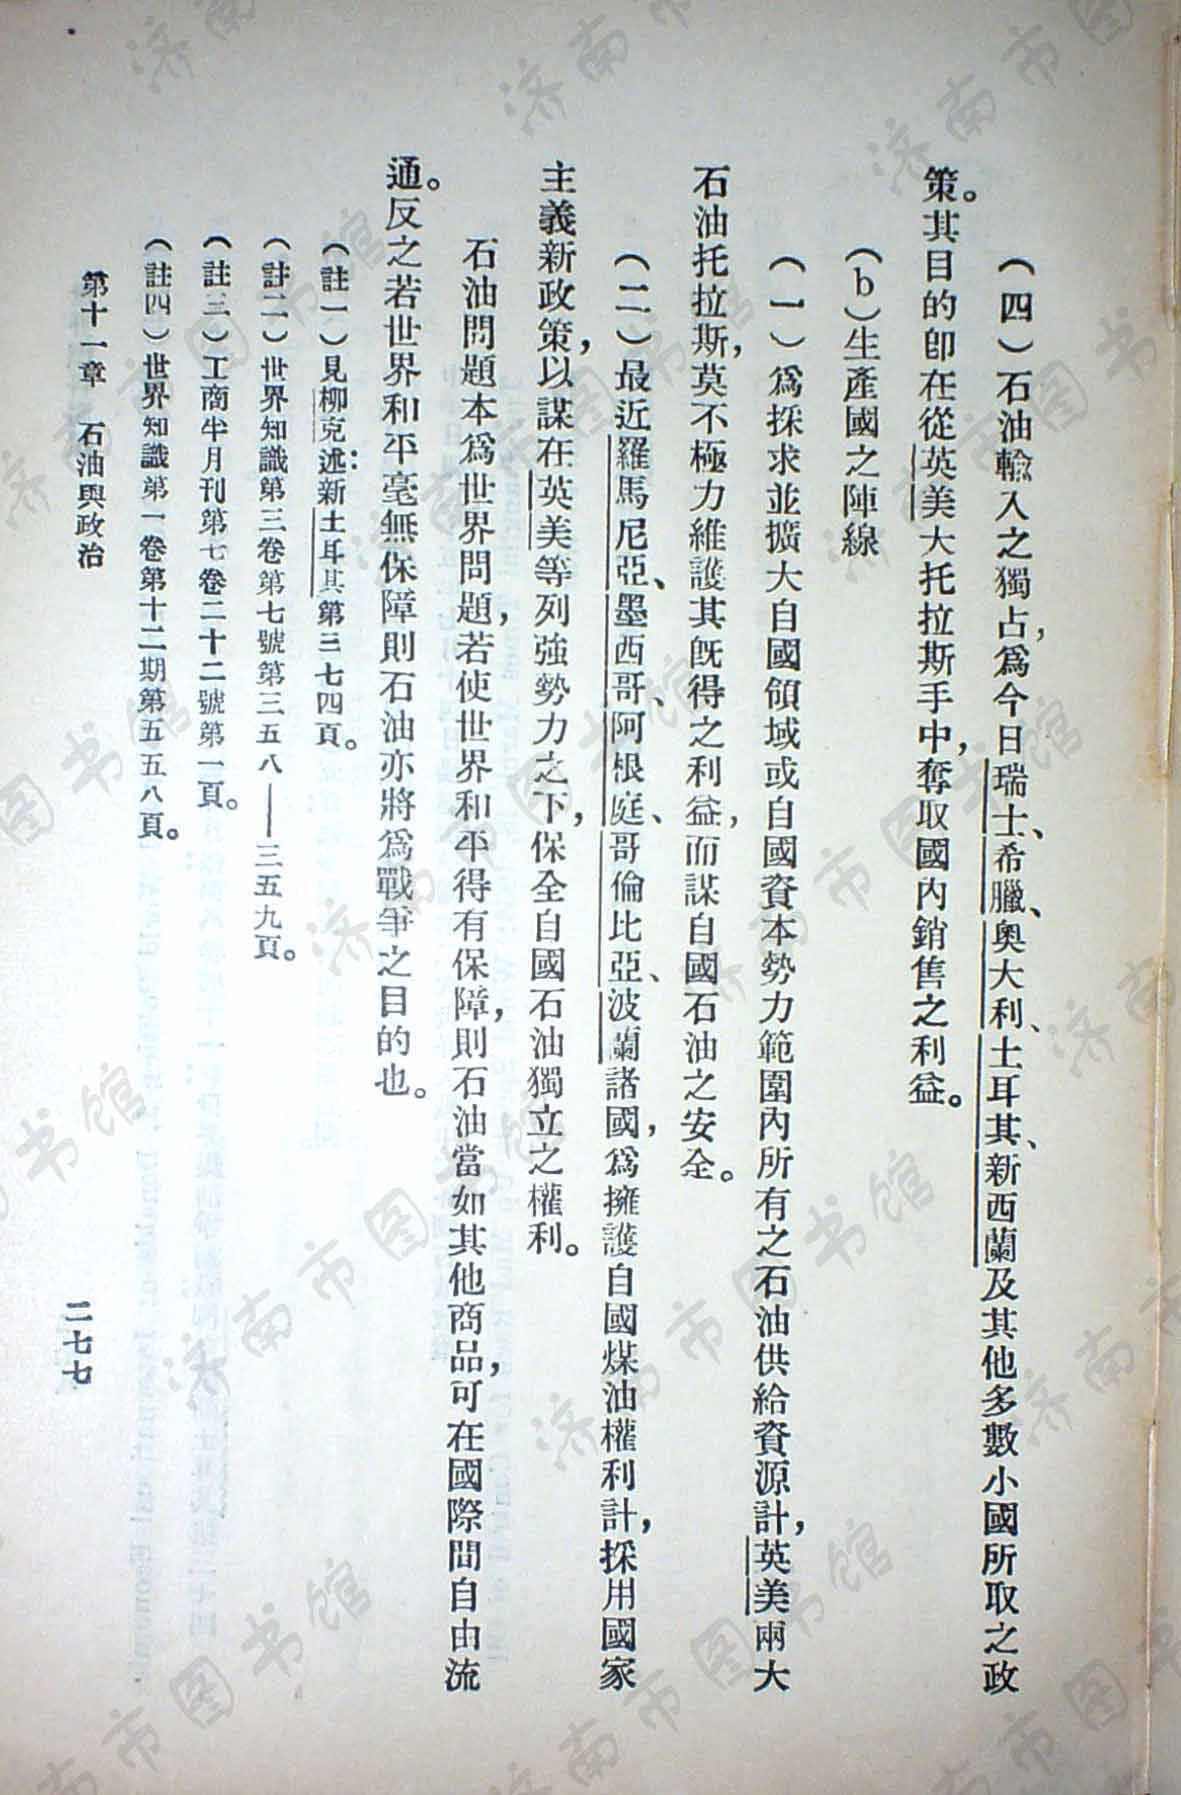 （四）石油輸入之獨占，爲今日瑞士、希臘、奧大利、土耳其、新西蘭及其他多數小國所取之政
策。其目的卽在從英美大托拉斯手中，奪取國內銷售之利益。
（b）生產國之陣線
（一）爲採求並擴大自國領域或自國資本勢力範圍內所有之石油供給資源計，英美兩大
石油托拉斯，莫不極力維護其旣得之利益，而謀自國石油之安全。
（二）最近羅馬尼亞、墨西哥、阿根庭、哥倫比亞、波蘭諸國，爲擁護自國煤油權利計，採用國家
主義新政策，以謀在英美等列強勢力之下，保全自國石油獨立之權利。
石油問題本爲世界問題，若使世界和平得有保障，則石油當如其他商品，可在國際間自由流
通。反之若世界和平毫無保障則石油亦將爲戰爭之目的也。
（註一）見柳克述：新土耳其第三七四頁。
（註二）世界知識第三卷第七號第三五八——三五九頁。
（註三）工商半月刊第七卷二十二號第一頁。
（註四）世界知識第一卷第十二期第五五八頁。
第十一章　石油與政治
二七七
济南市图书馆